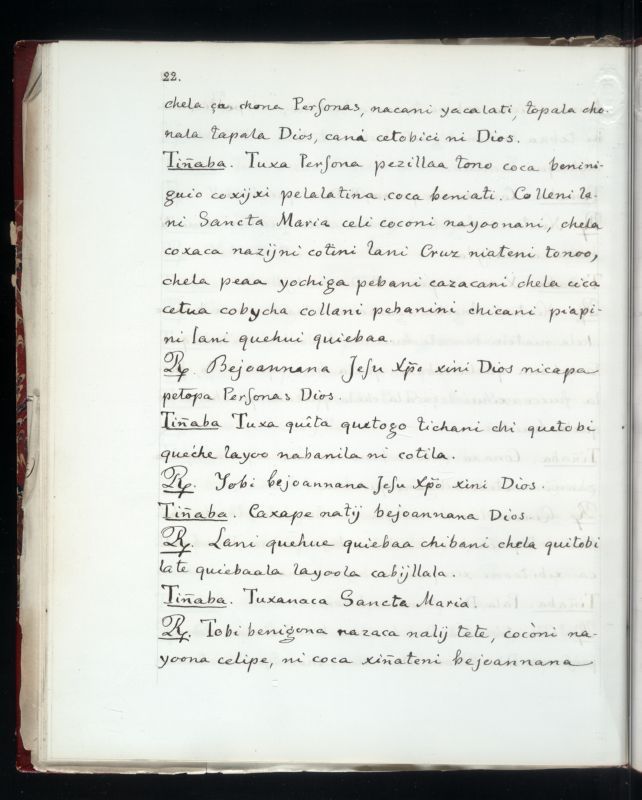 22.
chela ça chona Personas, nacani yacalati, topala cho-
nala tapala Dios, caná cetobici ni Dios.
Tiñaba. Tuxa Persona pezillaa tono coca benini-
guio coxijxi pelalatina coca beniati. Colleni la-
ni Sancta Maria celi coconi nayoonani, chela
coxaca nazijni cotini lani Cruz niateni tonoo,
chela peaa yochiga pebani cazacani chela cica
cetua cobycha collani pebanini chicani piapi-
ni lani quehui quiebaa
R. Bejoannana Jesu Xpõ xini Dios nicapa
petopa Personas Dios.
Tiñaba Tuxa quîta quetogo tichani chi quetobi
queche layoo nabanila ni cotila.
R. Yobi bejoannana Jesu Xpõ xini Dios.
Tiñaba. Caxape natij bejoannana Dios.
R. Lani quehue quiebaa chibani chela quitobi
late quiebaala layoola cabijllala.
Tiñaba. Tuxanaca Sancta Maria.
R. Tobi benigona nazaca nalij tete, cocòni na-
yoona celipe, ni coca xiñateni bejoannana